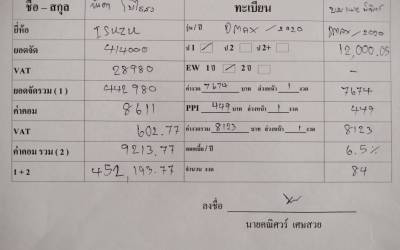 ชื่อ – สกุล ทะเบียน
ยี่ห้อ ISUZU รุ่น/ปี DMAX / 2020 DMAX / 2020
ยอดจัด 414000 ป 1 ป 2 ป 2+ 12,000.05
VAT 28980 EW 1 ปี 2 ปี –
ยอดจัดรวม ( 1 ) 442980 ค่างวด 7674 บาท ล่วงหน้า 1 งวด 7674
ค่าคอม 8611 PPI 449 บาท ล่วงหน้า 1 งวด 449
VAT 602.77 ค่างวดรวม 8123 บาท ล่วงหน้า 1 งวด 8123
ค่าคอม รวม ( 2 ) 9213.77 ดอกเบี้ย / ปี 6.5%
1 + 2 452,193.77 จำนวน งวด 84
ลงชื่อ
นายคณิศวร์ เศษสวย